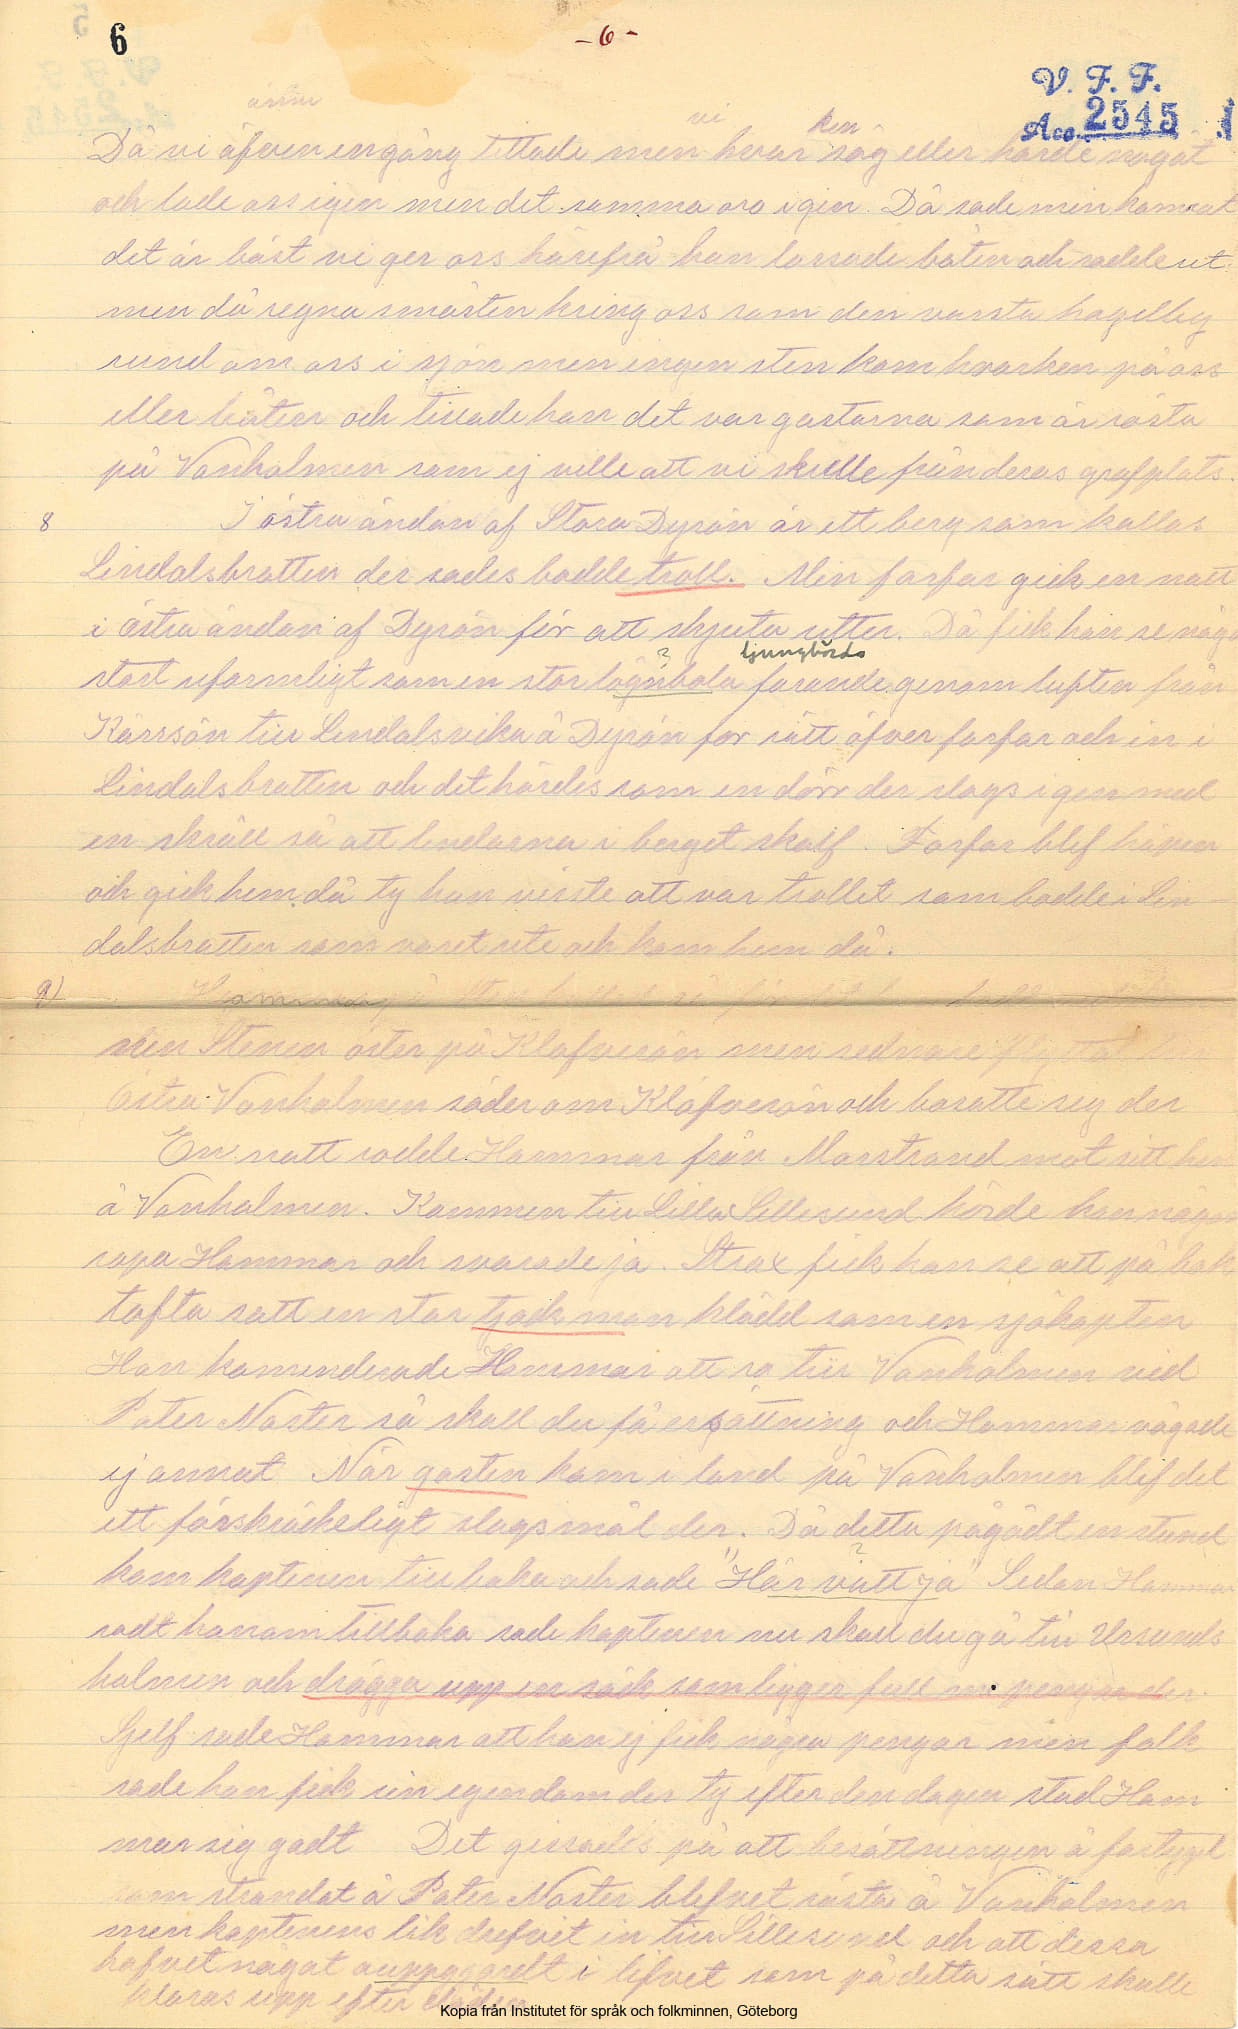 6
- 6 -
V. F. F.
Acc. 2545
ännu
vi
ken
Då vi äfven engång tittade men hvar såg eller hörde något
och lade oss igen men det samma oro igen. Då sade min kamrat
det är bäst vi ger oss härifrå han lossade båten och rodde ut
men då regna småsten kring oss som den varsta hagelby
rund om oss i sjön men ingen sten kom hvarken på oss
eller båten och tillade han det var gastarna som är rösta
på Vanholmen som ej ville att vi skulle från deras grafplats.
8 I östra ändan af Stora Dyrön är ett berg som kallas
Lindalsbratten der sades bodde troll. Min farfar gick en natt
i östra ändan af Dyrön för att skjuta utter. Då fick han se någo
? ljungbörda
stort uformligt som en stor lögnbola farande genom luften från
Kärrsön till Lindalsvika å Dyrön for rätt öfver farfar och in i
Lindalsbratten och det hördes som en dörr der slogs igen med
en skräll så att lindarna i berget skalf. Farfar blef häpen
och gick hem då ty han visste att var trollet som bodde i Lin-
dalsbratten som varit ute och kom hem då.
9)
den Stenen öster på Klafverön men sednare flyttat
Östra Vanholmen söder om Klåfverön och bosatte sig der
En natt rodde Hammar från Marstrand mot sitt hem
å Vanholmen. Kommen till Lilla Sillesund hörde han någon
ropa Hammar och svarade ja. Strax fick han se att på bak
tofta satt en stor tjock man klädd som en sjökapten
Han komenderade Hammar att ro till Vanholmen vid
Pater Noster så skall du få ersättning och Hammar vågade
ej annat När gasten kom i land på Vanholmen blif det
ett förskräckeligt slagsmål der. Då detta pågådt en stund
?
kom kaptenen tillbaka och sade "Här vatt ja" Sedan Hammar
rodt honom tillbaka sade kaptenen nu skall du gå till Ursunds
holmen och drägga upp en säck som ligger full m. pengar der.
Sjelf sade Hammar att han ej fick några pengar men folk
sade han fick sin egendom der ty efter den dagen stod Ham
mar sig godt Det gissades på att besättningen å fartyget
som strandat å Pater Noster blefvet rösta å Vanholmen
men kaptenens lik drefvit in till Sillesund och att dessa
hafvet något ouppgordt i lifvet som på detta sätt skulle
klaras upp efter döden
Kopia från Institutet för språk och folkminnen, Göteborg